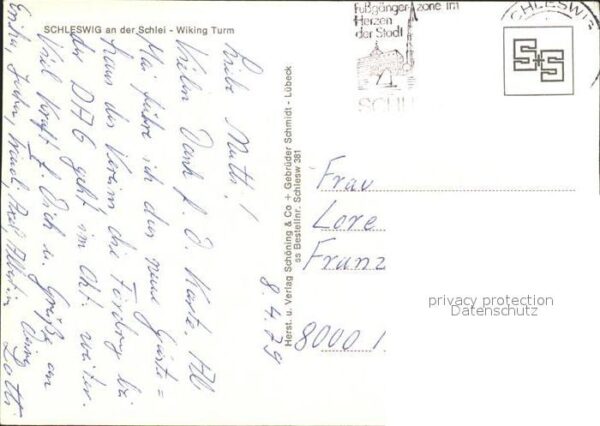 SCHLESWIG an der Schlei - Wiking Turm
Liebe Mutti!
Vielen Dank f. D. Karte. Ab
Mai führe ich das neue Gäste=
haus des Vereins die Förderg bei
der DAG geht im Okt. weiter.
Viel Kraft f. Dich u. Grüße an
8.4.79
Herst. u. Verlag Schöning & Co + Gebrüder Schmidt - Lübeck
ss Bestellnr. Schlesw 381
Fußgängerzone im
Herzen
der Stadt
SCHLESWIG
S+S
Frau
Lore
Franz
8000 1
privacy protection
Datenschutz